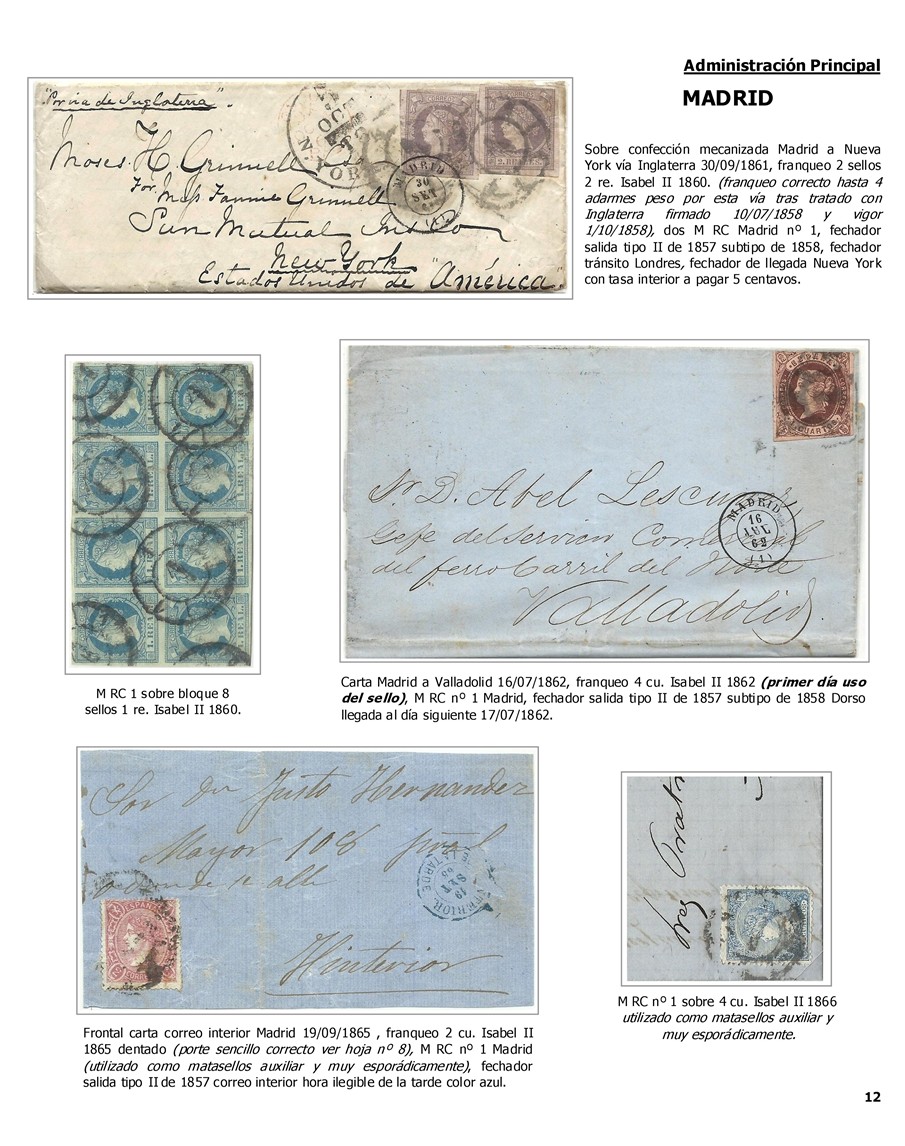 Administración Principal
MADRID
"Por via de Inglaterra".
Moses. H. Grinnell Esq
For Miss Fannie Grinnell
Sun Mutual Ins Co
New York
Estados Unidos de "América".
OCT
N. YORK
MADRID
30
SET
(1)
CORREOS
CORREOS
2. REALES
Sobre confección mecanizada Madrid a Nueva
York vía Inglaterra 30/09/1861, franqueo 2 sellos
2 re. Isabel II 1860. (franqueo correcto hasta 4
adarmes peso por esta vía tras tratado con
Inglaterra firmado 10/07/1858 y vigor
1/10/1858), dos M RC Madrid nº 1, fechador
salida tipo II de 1857 subtipo de 1858, fechador
tránsito Londres, fechador de llegada Nueva York
con tasa interior a pagar 5 centavos.
1. REAL
1. REAL
M RC 1 sobre bloque 8
sellos 1 re. Isabel II 1860.
4 CUARTOS
Sr. D. Abel Lescu
Gefe del Servicio Comercial
del ferro Carril del Norte
Valladolid
MADRID
16
JUL
62
(1)
Carta Madrid a Valladolid 16/07/1862, franqueo 4 cu. Isabel II 1862 (primer día uso
del sello), M RC nº 1 Madrid, fechador salida tipo II de 1857 subtipo de 1858 Dorso
llegada al día siguiente 17/07/1862.
Sor Dn Justo Hernandez
Mayor 108
Hinterior
ESPAÑA
INTERIOR
19
SET
TARDE
Frontal carta correo interior Madrid 19/09/1865 , franqueo 2 cu. Isabel II
1865 dentado (porte sencillo correcto ver hoja nº 8), M RC nº 1 Madrid
(utilizado como matasellos auxiliar y muy esporádicamente), fechador
salida tipo II de 1857 correo interior hora ilegible de la tarde color azul.
M RC nº 1 sobre 4 cu. Isabel II 1866
utilizado como matasellos auxiliar y
muy esporádicamente.
12